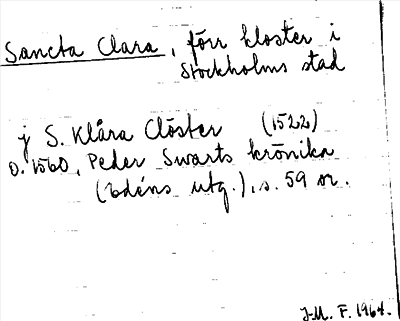 Sancta Clara, förr kloster i
Stockholms stad
j S. Klåra Clöster (1522)
o. 1560, Peder Swarts krönika
(Edéns utg.), s. 59 or.
J-M. F. 1964.